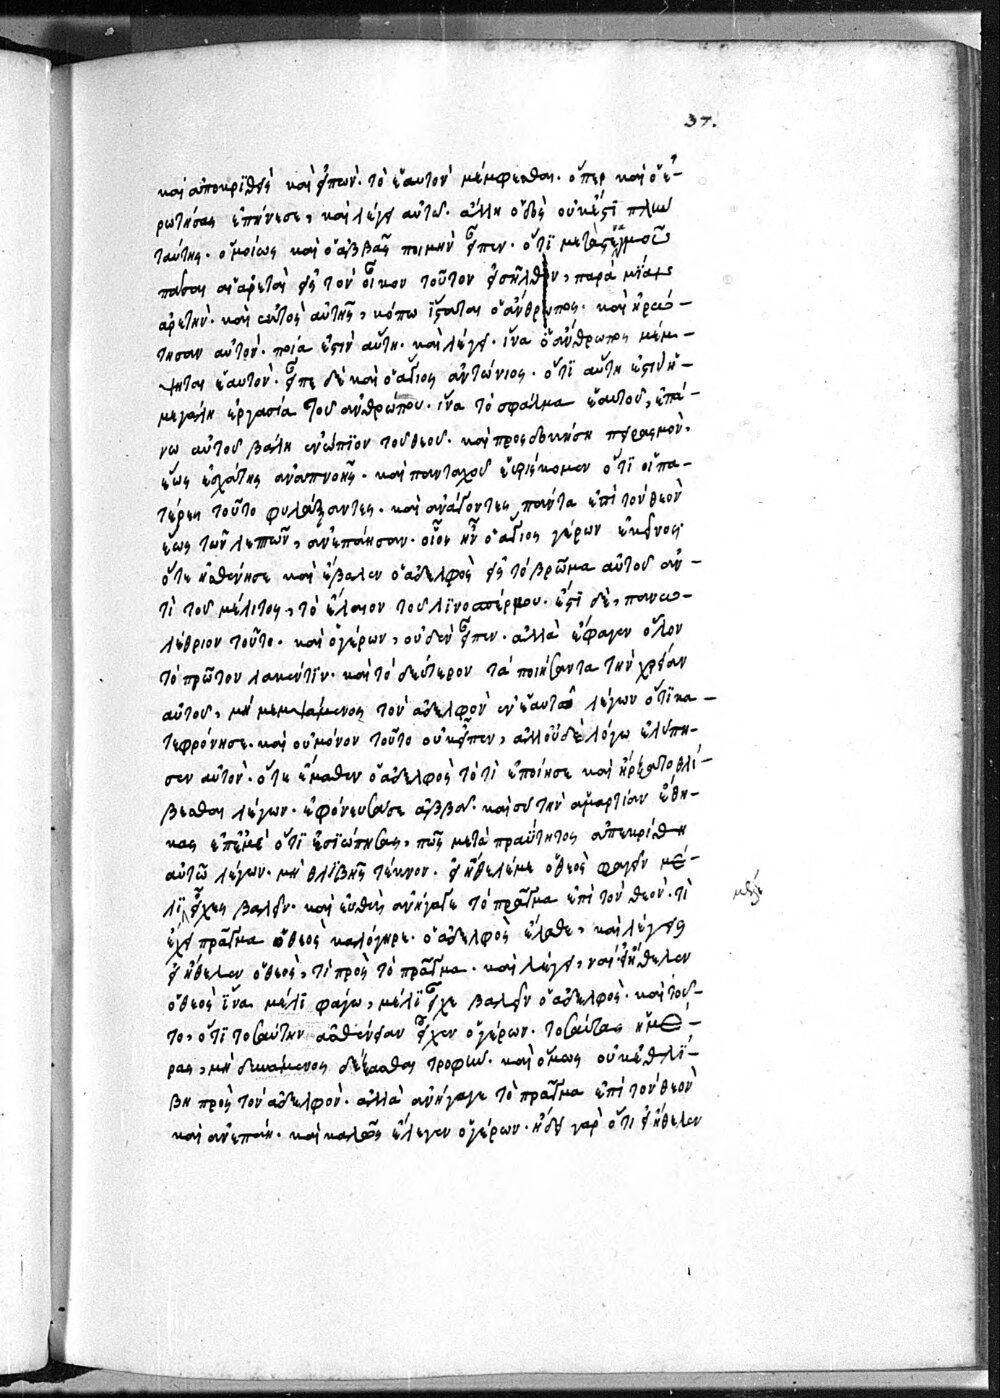 37.
καὶ ἀποκριθεὶς καὶ εἰπὼν· τὸ ἑαυτὸν μέμφεσθαι· ὅπερ καὶ ὁ ἐ-
ρωτήσας ἐπήνεσε, καὶ λέγει αὐτῷ· ἄλλη ὁδὸς οὐκ ἔστι πλὴν
ταύτης· ὁμοίως καὶ ὁ ἀββᾶς ποιμὴν εἶπεν· ὅτι μετὰ στεναγμοῦ
πᾶσαι αἱ ἀρεταὶ εἰς τὸν οἶκον τοῦτον εἰσῆλθον, παρὰ μιᾶς
ἀρετὴν· καὶ ἐκτὸς αὐτῆς, κόπῳ ἵσταται ὁ ἄνθρωπος· καὶ ἠρώ-
τησαν αὐτὸν· ποία ἐστὶν αὕτη· καὶ λέγει· ἵνα ὁ ἄνθρωπος μέμ-
ψηται ἑαυτὸν· εἶπε δὲ καὶ ὁ ἅγιος ἀντώνιος· ὅτι αὕτη ἐστὶν ἡ
μεγάλη ἐργασία τοῦ ἀνθρώπου· ἵνα τὸ σφάλμα ἑαυτοῦ, ἐπά-
νω αὐτοῦ βάλῃ ἐνώπιον τοῦ θεοῦ· καὶ προσδοκήσῃ πειρασμὸν,
ἕως ἐσχάτης ἀναπνοῆς· καὶ πανταχοῦ εὑρίσκομεν ὅτι οἱ πα-
τέρες τοῦτο φυλάξαντες· καὶ ἀνάγοντες πάντα ἐπὶ τὸν θεὸν
ἕως τῶν λεπτῶν, ἀνεπάησαν· οἷος ἦν ὁ ἅγιος γέρων ἐκεῖνος·
ὅτε ἠσθένησε καὶ ἔβαλεν ὁ ἀδελφὸς εἰς τὸ βρῶμα αὐτοῦ ἀν-
τὶ τοῦ μέλιτος, τὸ ἔλαιον τοῦ λινοσπέρμου· ἔστι δὲ, πανω-
λέθριον τοῦτο· καὶ ὁ γέρων, οὐδὲν εἶπεν· ἀλλὰ ἔφαγεν ὅλον
τὸ πρῶτον λακέντιν· καὶ τὸ δεύτερον τὰ ποιήσαντα τὴν χρείαν
αὐτοῦ, μὴ μεμψάμενος τὸν ἀδελφὸν ἐν ἑαυτῷ λέγων ὅτι κα-
τεφρόνησε· καὶ οὐ μόνον τοῦτο οὐκ εἶπεν, ἀλλ' οὐδὲ λόγῳ ἐλύπη-
σεν αὐτὸν· ὅτε ἔμαθεν ὁ ἀδελφὸς τὸ τί ἐποίησε καὶ ἤρξατο θλί-
βεσθαι λέγων· ἐφόνευσά σε ἀββᾶ· καὶ σὺ τὴν ἁμαρτίαν ἔθη-
κας ἐπ' ἐμὲ ὅτι ἐσιώπησας, πῶς μετὰ πραΰτητος ἀπεκρίθη
αὐτῷ λέγων· μὴ θλίβῃς τέκνον· εἰ ἤθελέ με ὁ θεὸς φαγεῖν μέ-
λι εἶχες βαλεῖν· καὶ εὐθὺς ἀνήγαγε τὸ πρᾶγμα ἐπὶ τὸν θεὸν· τί
ἔχει πρᾶγμα ὁ θεὸς καλόγηρε· ὁ ἀδελφὸς ἔλαθε, καὶ λέγεις
εἰ ἤθελεν ὁ θεὸς, τί πρὸς τὸ πρᾶγμα· καὶ λέγει, ναὶ εἰ ἤθελεν
ὁ θεὸς ἵνα μέλι φάγω, μέλι εἶχε βαλεῖν ὁ ἀδελφὸς· καὶ τοῦ-
το, ὅτι τοσαύτην ἀσθένειαν εἶχεν ὁ γέρων· τοσαύτας ἡμέ-
ρας, μὴ δυνάμενος δέξασθαι τροφὴν· καὶ ὅμως οὐκ ἐθλί-
βη πρὸς τὸν ἀδελφὸν· ἀλλὰ ἀνήγαγε τὸ πρᾶγμα ἐπὶ τὸν θεὸν
καὶ ἀνεπάη· καὶ καλῶς ἔλεγεν ὁ γέρων· ᾔδει γὰρ ὅτι εἰ ἤθελεν